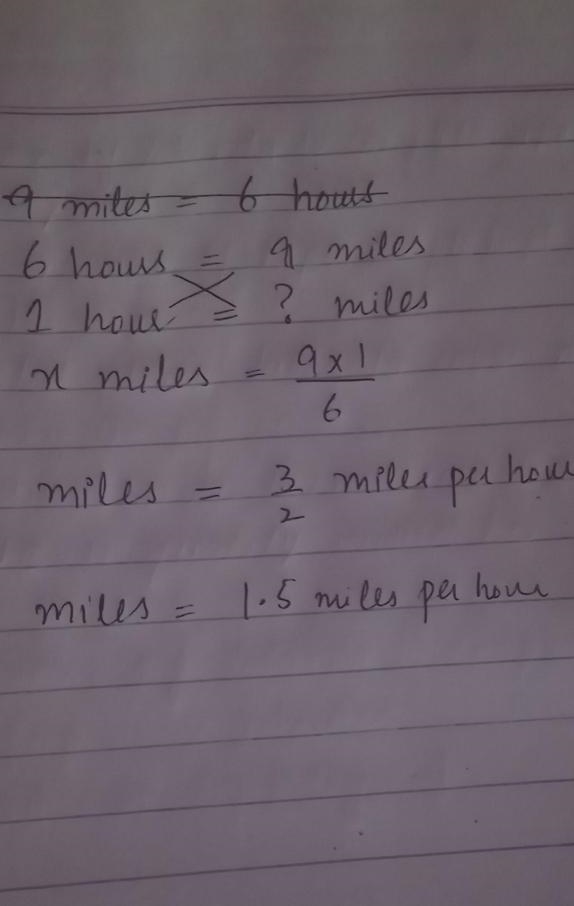 9 miles = 6 hours
6 hours = 9 miles
1 hour = ? miles
x miles = 9 x 1 / 6
miles = 3/2 miles per hour
miles = 1.5 miles per hour